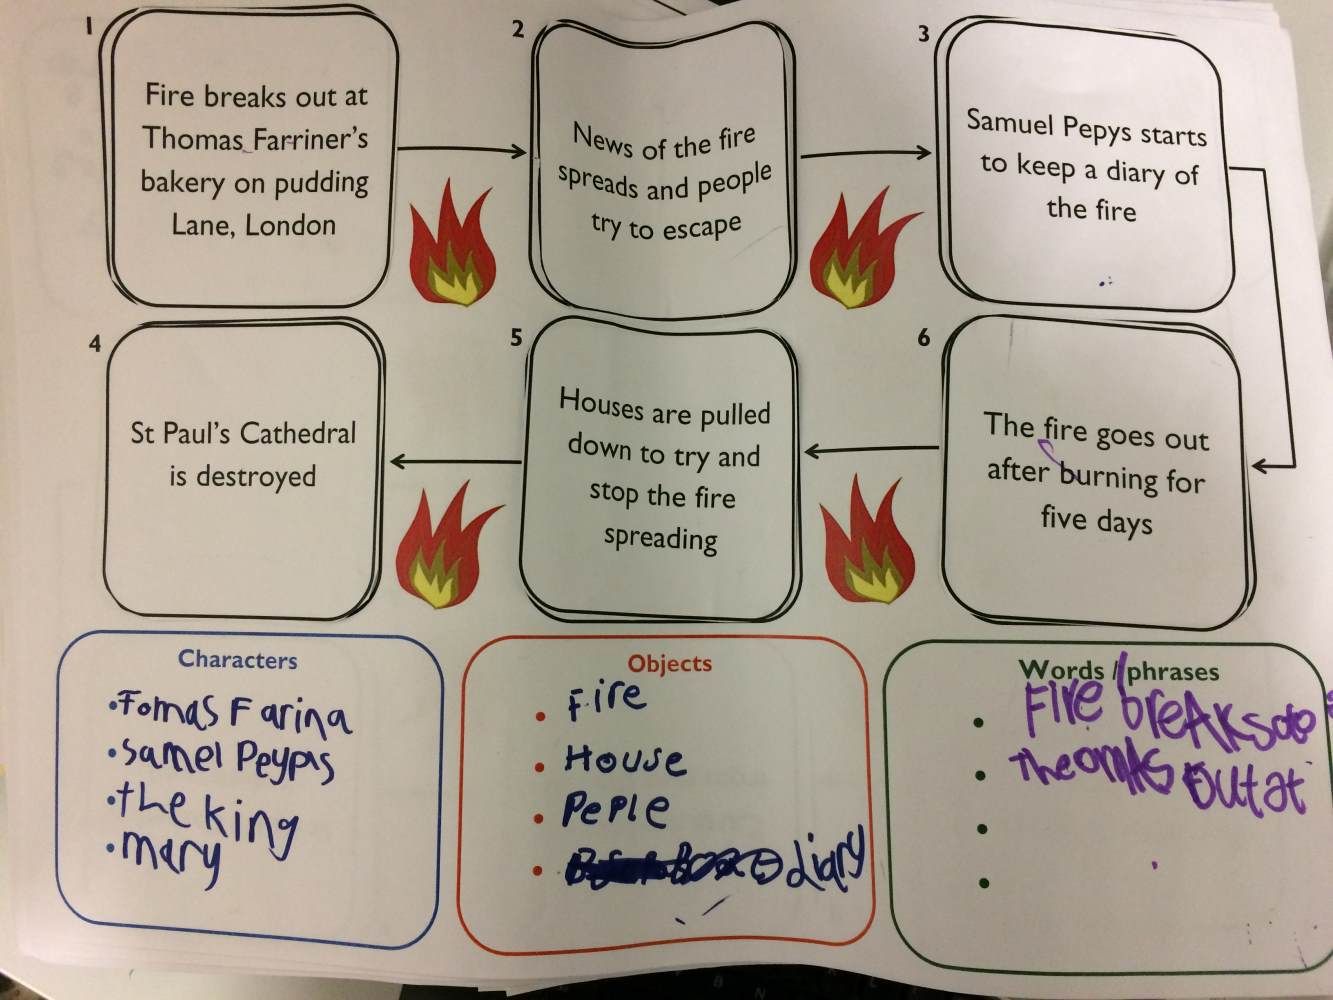 1
Fire breaks out at
Thomas Farriner's
bakery on pudding
Lane, London
2
News of the fire
spreads and people
try to escape
3
Samuel Pepys starts
to keep a diary of
the fire
4
St Paul's Cathedral
is destroyed
5
Houses are pulled
down to try and
stop the fire
spreading
6
The fire goes out
after burning for
five days
Characters
• Fomas Farina
• Samel Peypis
• the king
• mary
Objects
• Fire
• House
• Peple
• diary
Words / phrases
• Fire breaks
• out at